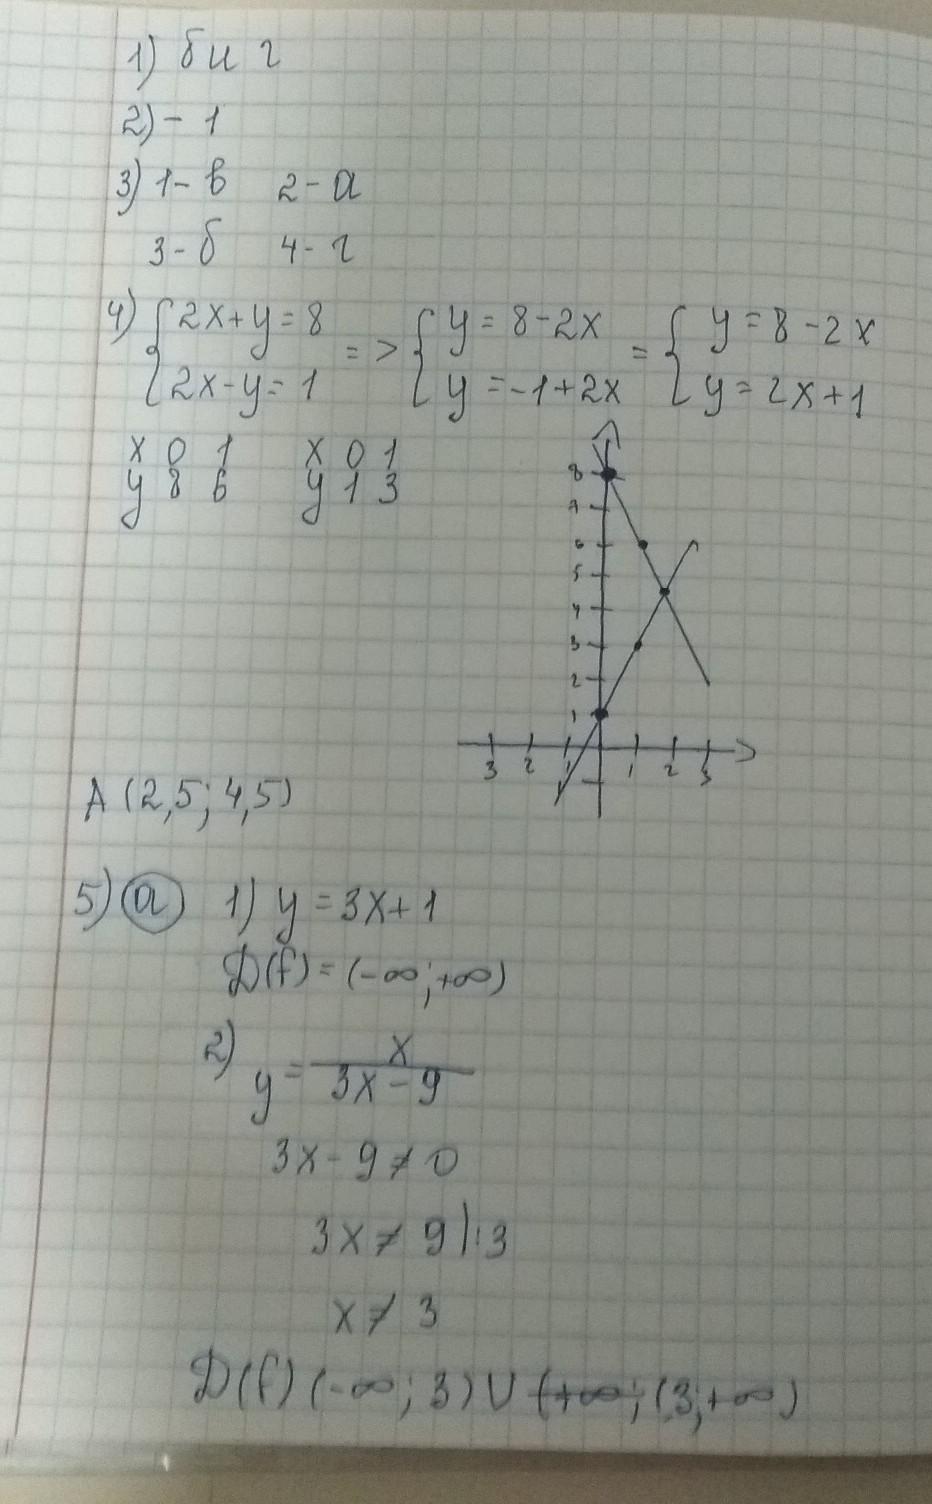 1) б и г
2) - 1
3) 1 - в 2 - а
3 - б 4 - г
4) { 2x + y = 8 => { y = 8 - 2x = { y = 8 - 2x
2x - y = 1 y = -1 + 2x y = 2x + 1
x 0 1 x 0 1
y 8 6 y 1 3
8
7
6
5
4
3
2
1
3 2 1 1 2 3
A (2,5; 4,5)
5) а 1) y = 3x + 1
D(f) = (-∞; +∞)
2) y = x / 3x - 9
3x - 9 ≠ 0
3x ≠ 9 |:3
x ≠ 3
D(f) (-∞; 3) U (+∞; (3; +∞)